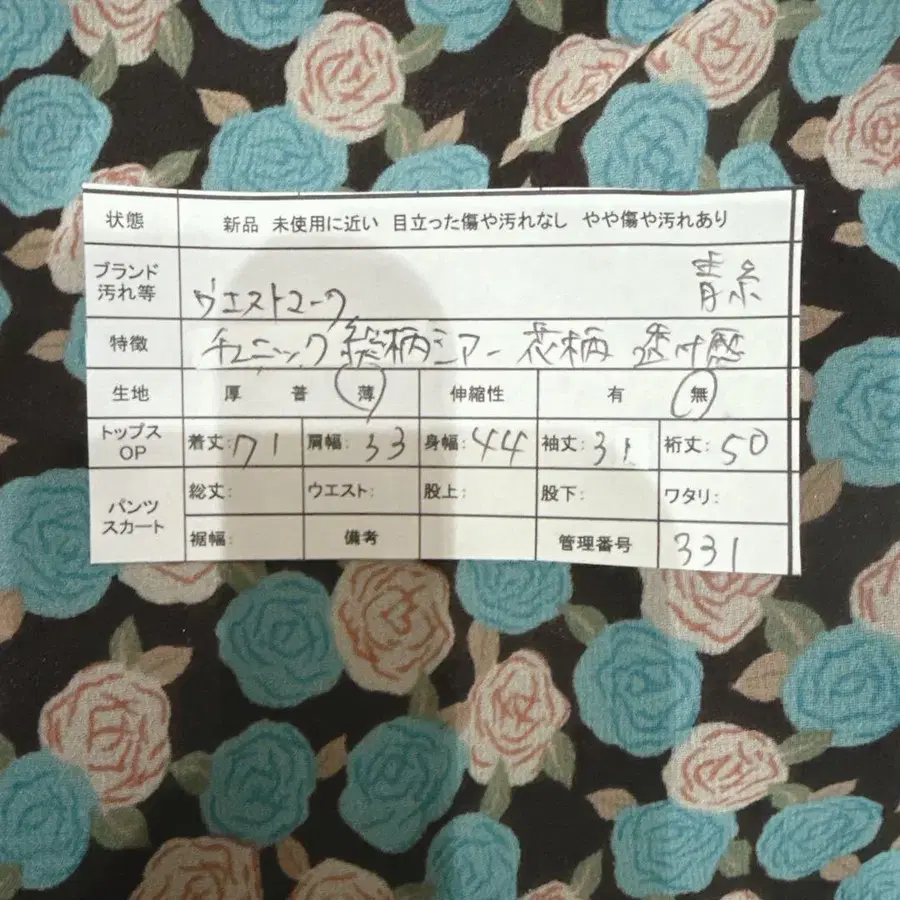 状態 新品 未使用に近い 目立った傷や汚れなし やや傷や汚れあり
ブランド 汚れ等 ウエストマーク 青糸
特徴 チュニック 総柄 シアー 花柄 透け感
生地 厚 普 薄 伸縮性 有 無
トップス OP 着丈:71 肩幅:33 身幅:44 袖丈:31 裄丈:50
パンツ スカート 総丈: ウエスト: 股上: 股下: ワタリ:
裾幅: 備考 管理番号 331